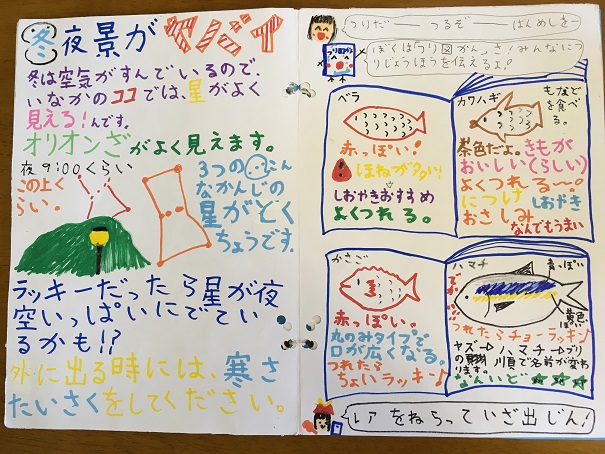 冬夜景がヤバイ
冬は空気がすんでいるので、
いなかのココでは、星がよく
見える！んです。
オリオンざがよく見えます。
夜9:00くらい
この上く
らい。
3つの
なかんじの
星がとく
ちょうです。
ラッキーだったら星が夜
空いっぱいにでてい
るかも!?
外に出る時には、寒さ
たいさくをしてください。
つりだーーつるぞーーばんめしをー
ぼくはつり図かん。さ！みんなにつ
りじょうほうを伝えるよ！
ベラ
赤っぽい！
ほねがタタい！
しおやきおすすめ
よくつれる。
カワハギ
もなどを食べる。
茶色だよ。きもが
おいしい(らしい)
よくつれる〜。
につけ しおやき
おさしみ なんでもうまい
かさご
赤っぽい。
丸のみタイプで
口が広くなる。
つれたら
ちょいラッキー♪
ハマチ
青っぽい
黄色っぽい
つれたらチョーラッキー♪
ヤズ→ハマチ→ブリ
の順で名前が変わ
ります。
なんいど ☆☆☆
レアをねらっていざ出じん！